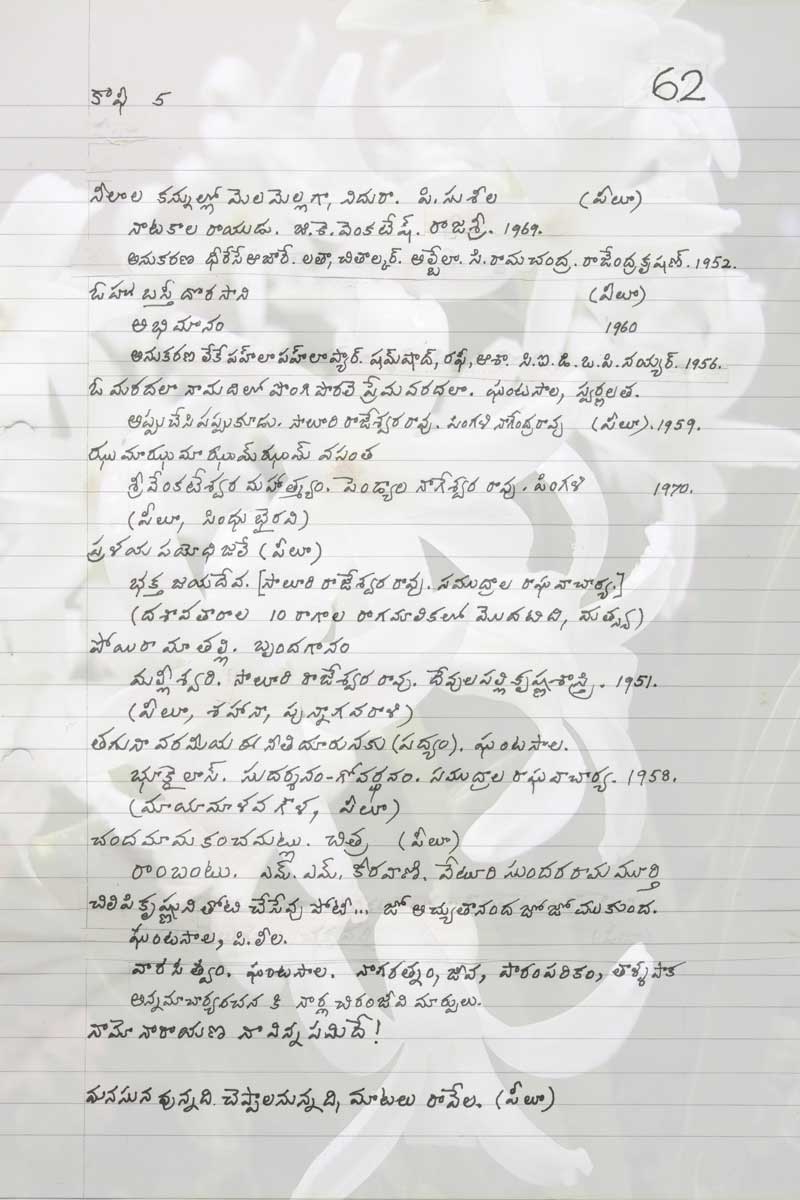 కాఫి 5
62
నీలాల కన్నుల్లో మెలమెల్లగా, నిదురా. పి. సుశీల (పీలూ)
నాటకాల రాయుడు. జి.కె. వెంకటేష్. రాజశ్రీ. 1969.
అనుకరణ ధీరేసే ఆజారే. లతా, చితాల్కర్. అల్బేలా. సి. రామచంద్ర. రాజేంద్రకృషణ్. 1952.
ఓహో బస్తీ దొరసాని (పీలూ)
అభిమానం 1960
అనుకరణ లేకే పహ్లా పహ్లా ప్యార్. షమ్‌షాద్, రఫీ, ఆశా. సి.ఐ.డి. ఒ.పి. నయ్యర్. 1956.
ఓ మరదలా నామదిలో పొంగి పొరలె ప్రేమ వరదలా. ఘంటసాల, స్వర్ణలత.
అప్పుచేసి పప్పుకూడు. సాలూరి రాజేశ్వర రావు. పింగళి నాగేంద్రరావు (పీలూ). 1959.
ఝుమాఝుమా ఝుమ్‌ఝుమ్ వసంత
శ్రీ వేంకటేశ్వర మహాత్మ్యం. పెండ్యాల నాగేశ్వర రావు. పింగళి 1970.
(పీలూ, సింధు భైరవి)
ప్రళయ పయోధి జలే (పీలూ)
భక్త జయదేవ. [సాలూరి రాజేశ్వర రావు. సముద్రాల రాఘవాచార్య.]
(దశావతారాల 10 రాగాల రాగమాలికలో మొదటిది, మత్స్య)
పోయిరా మా తల్లి. బృందగానం
మల్లీశ్వరి. సాలూరి రాజేశ్వర రావు. దేవులపల్లి కృష్ణశాస్త్రి. 1951.
(పీలూ, శహానా, పున్నాగవరాళి)
తగునా వరమీయ ఈ నీతి దూరునకు (పద్యం). ఘంటసాల.
భూకైలాస్. సుదర్శనం-గోవర్ధనం. సముద్రాల రాఘవాచార్య. 1958.
(మాయామాళవ గౌళ, పీలూ)
చందమామ కంచమట్లు. చిత్ర (పీలూ)
రాంబంటు. ఎమ్. ఎమ్. కీరవాణి. వేటూరి సుందరరామ మూర్తి
చిలిపి కృష్ణునితోటి చేసేవు పోటీ... జో అచ్యుతానంద జోజో ముకుంద.
ఘంటసాల, పి. లీల.
వారసత్వం. ఘంటసాల. నాగరత్నం, జీవ, పారంపరికం, తాళ్ళపాక
అన్నమాచార్యరచన కి నార్ల చిరంజీవి మార్పులు.
నామో నారాయణ నా విన్నపమిదే!
మనసున వున్నది చెప్పాలనున్నది, మాటలు రావేల. (పీలూ)